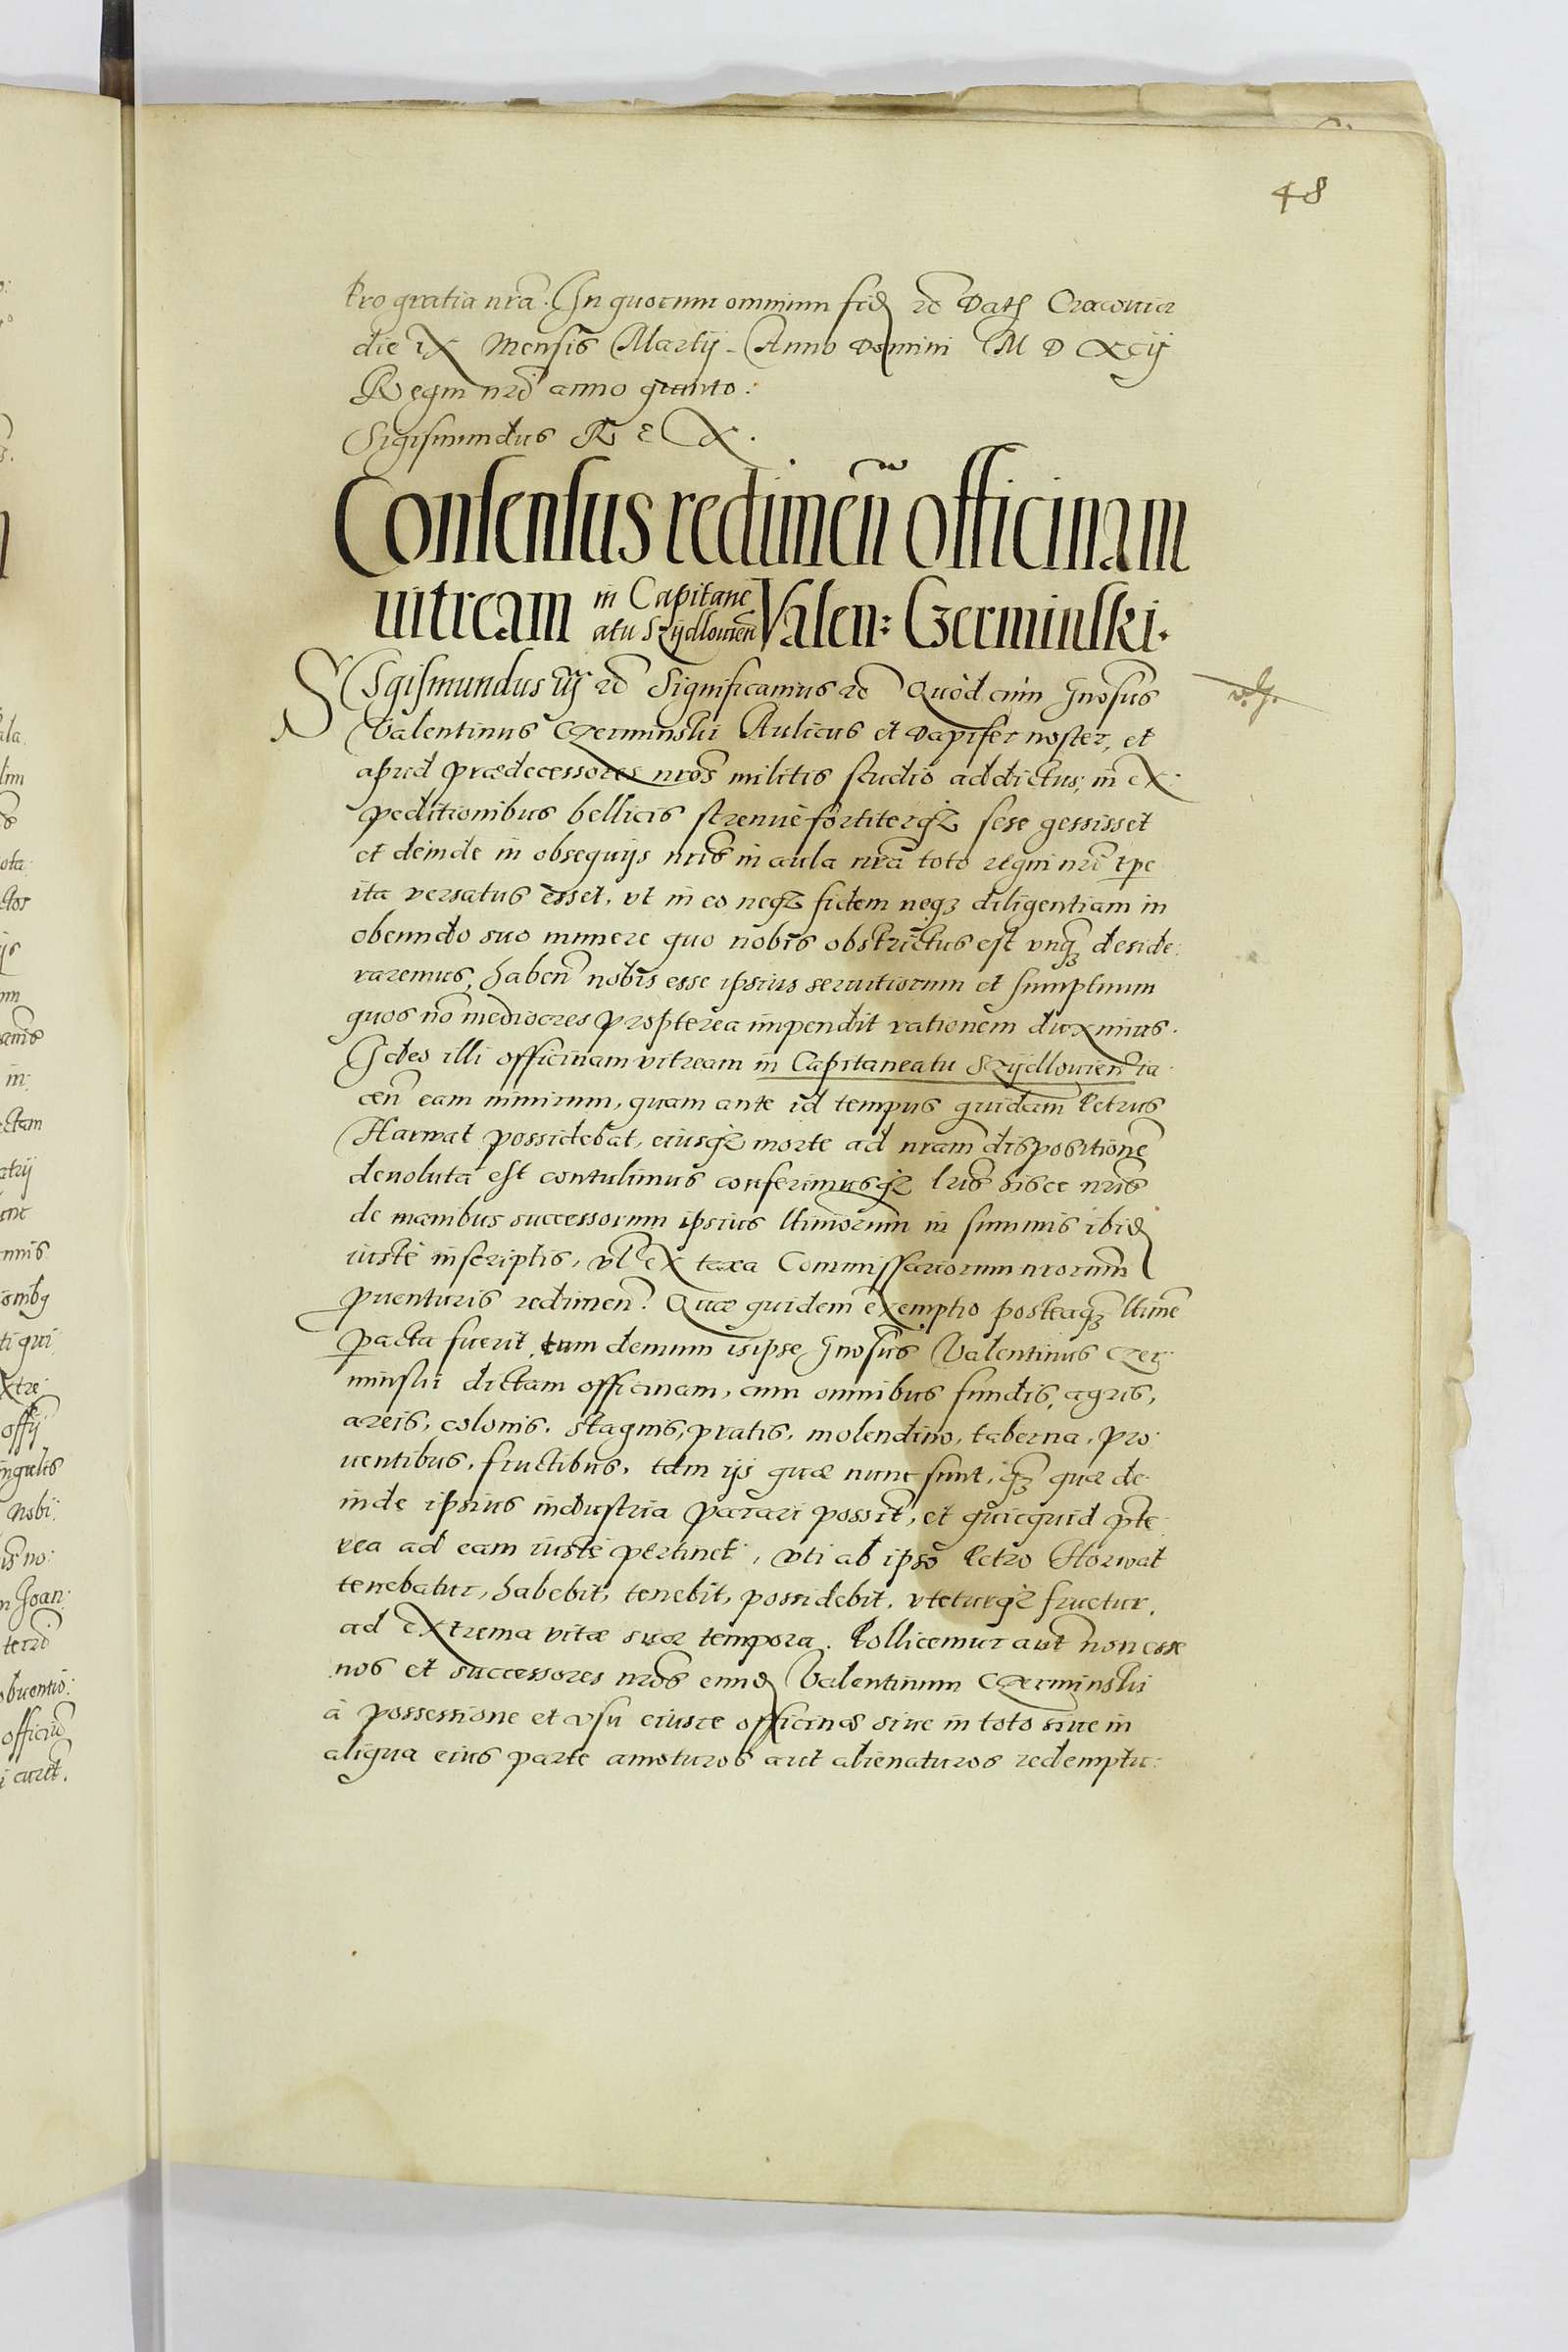 48
Pro gratia nrã. In quorum omnium fid rc Datt Cracoviæ
die ix Mensis Martij Anno Domini M D XCij
Regni nri anno quinto:
Sigismundus R E X.
Consensus redimen̄ officinam
vitream in Capitane
atu Szijdlovien̄ Valen: Czerminski.
Sigismundus iij rc Significamus rc Quòd cum Gnosus
Valentinus Czerminski Aulicus et Dapifer noster, et
apud prædecessores nros militiæ studio addictus, in ex
peditionibus bellicis strenuè fortiterqz sese gessisset
et deinde in obsequijs nris in aula nrã toto regni nri tpe
ita versatus esset, vt in eo neqz fidem neqz diligentiam in
obeundo suo munere quo nobis obstrictus est vnqz deside:
raremus, haben̄ nobis esse ipsius servitiorum et sumptuum
quos nō mediocres propterea impendit rationem duximus.
Ideo illi officinam vitream in Capitaneatu Szijdlovien̄ ia
cen̄ eam nimirum, quam ante id tempus quidam Petrus
Harwat possidebat, eiusqz morte ad nram dispositionē
devoluta est contulimus conferimusqz lris hisce nris
de manibus successorum ipsius ltimorum in summis ibid
iustè inscriptis, vl ex taxa Commissariorum nrorum
pventuris redimen̄. Quæ quidem exemptio posteaqz ltimē
pacta fuerit, tum demum is ipse Gnosus Valentinus Czer
minski dictam officinam, cum omnibus fundis, agris,
areis, colonis, stagnis, pratis, molendino, taberna, pro
ventibus, fructibus, tam ijs quæ nunc sunt, qz quæ de
inde ipsius industria parari possūt, et quicquid pte
rea ad eam iustè pertinet, vti ab ipso Petro Horwat
tenebatur, habebit, tenebit, possidebit, vteturqz fruetur,
ad extrema vitæ suæ tempora. Pollicemur aut non esse
nos et successores nros eund Valentinum Czerminski
à possessione et vsu eiusce officinæ sive in toto sive in
aliqua eius parte amoturos aut alienaturos redemptu: